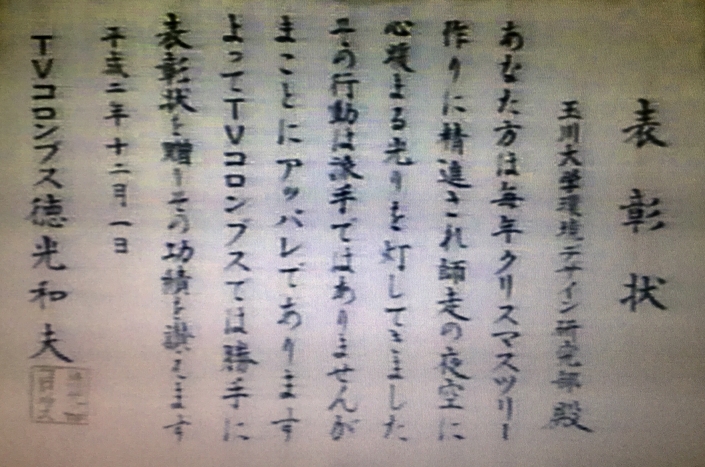 表彰状
玉川大学環境デザイン研究部殿
あなた方は毎年クリスマスツリー
作りに精進され師走の夜空に
心暖まる光りを灯してきました
その行動は派手ではありませんが
まことにアッパレであります
よってTVコロンブスでは勝手に
表彰状を贈りその功績を讃えます
平成二年十二月一日
TVコロンブス徳光和夫